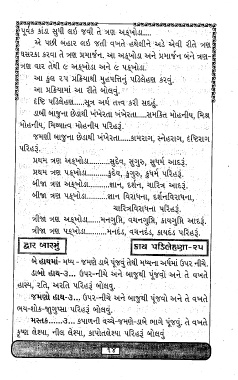 પૂર્વક કાંડા સુધી લઇ જવી તે ત્રણ અક્ખોડા....
એ પછી બહાર લઇ જતી વખતે હથેળીને અડે એવી રીતે ત્રણ
ઘસરકા કરવા તે ત્રણ પ્રમાર્જન. આ અક્ખોડા અને પ્રમાર્જન બંને ત્રણ-
ત્રણ વાર તેથી ૯ અક્ખોડા અને ૯ પક્ખોડા.
આ કુલ ૨૫ પ્રક્રિયાથી મુહપત્તિનું પડિલેહણ કરવું.
આ પ્રક્રિયામાં આ રીતે બોલવું.
દૃષ્ટિ પડિલેહણા.....સૂત્ર અર્થ તત્ત્વ કરી સદહું.
ડાબી બાજુના છેડાથી ખંખેરતા ખંખેરતા.....સમકિત મોહનીય, મિશ્ર
મોહનીય, મિથ્યાત્વ મોહનીય પરિહરૂં.
જમણી બાજુના છેડાથી ખંખેરતા.....કામરાગ, સ્નેહરાગ, દૃષ્ટિરાગ
પરિહરૂં.
પ્રથમ ત્રણ અક્ખોડા.....સુદેવ, સુગુરુ, સુધર્મ આદરૂં.
પ્રથમ ત્રણ પક્ખોડા.....કુદેવ, કુગુરુ, કુધર્મ પરિહરૂં.
બીજા ત્રણ અક્ખોડા.....જ્ઞાન, દર્શન, ચારિત્ર આદરૂં.
બીજા ત્રણ પક્ખોડા.....જ્ઞાન વિરાધના, દર્શનવિરાધના,
ચારિત્રવિરાધના પરિહરૂં.
ત્રીજા ત્રણ અક્ખોડા.....મનગુપ્તિ, વચનગુપ્તિ, કાયગુપ્તિ આદરૂં.
ત્રીજા ત્રણ પક્ખોડા.....મનદંડ, વચનદંડ, કાયદંડ પરિહરૂં.
દ્વાર બારમું કાય પડિલેહણા-૨૫
બે હાથમાં - મધ્ય - જમણે ડાબે પૂંજવું તેથી મધ્યના અર્થમાં ઉપર નીચે.
ડાબો હાથ-૩... ઉપર-નીચે અને બાજુથી પૂંજવો અને તે વખતે
હાસ્ય, રતિ, અરતિ પરિહરૂં બોલવું.
જમણો હાથ-૩... ઉપર-નીચે અને બાજુથી પૂંજવો અને તે વખતે
ભય-શોક-જુગુપ્સા પરિહરૂં બોલવું.
મસ્તક.....-૩... કપાળની વચ્ચે-જમણે-ડાબે ભાગે પૂંજવું. તે વખતે
કૃષ્ણ લેશ્યા, નીલ લેશ્યા, કાપોતલેશ્યા પરિહરૂં બોલવું